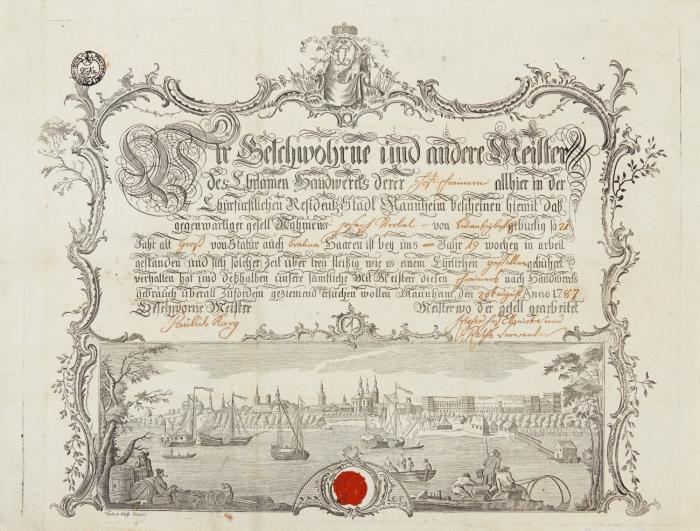 Wir Geschwohrne und andere Meister
des Ehrsamen Handwercks derer allhier in der
Churfürstlichen Residentz Stadt Mannheim bescheinen hiemit daß
gegenwärtiger gesell Nahmens Joseph von gebürtig so 21
Jahr alt Groß von Statur auch braun Haaren ist bey uns — Jahr 19 wochen in arbeit
gestanden und sich solcher Zeit über treü fleißig wie es einem Ehrlichen gesellen gebühret
verhalten hat und deßhalben unsere sämtliche Mit Meister diesen nach Handwercks
gebrauch überall zufördern geziemend ersuchen wollen Mannheim den 20 August Anno 1787
Geschworne Meister Meister wo der gesell gearbeitet
Paulus Karg